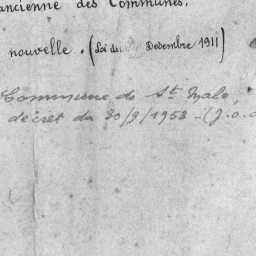 ancienne des Communes.
nouvelle. (Loi du Decembre 1911)
Commune de St Malo,
décret du 30/9/1953 - (J.O.